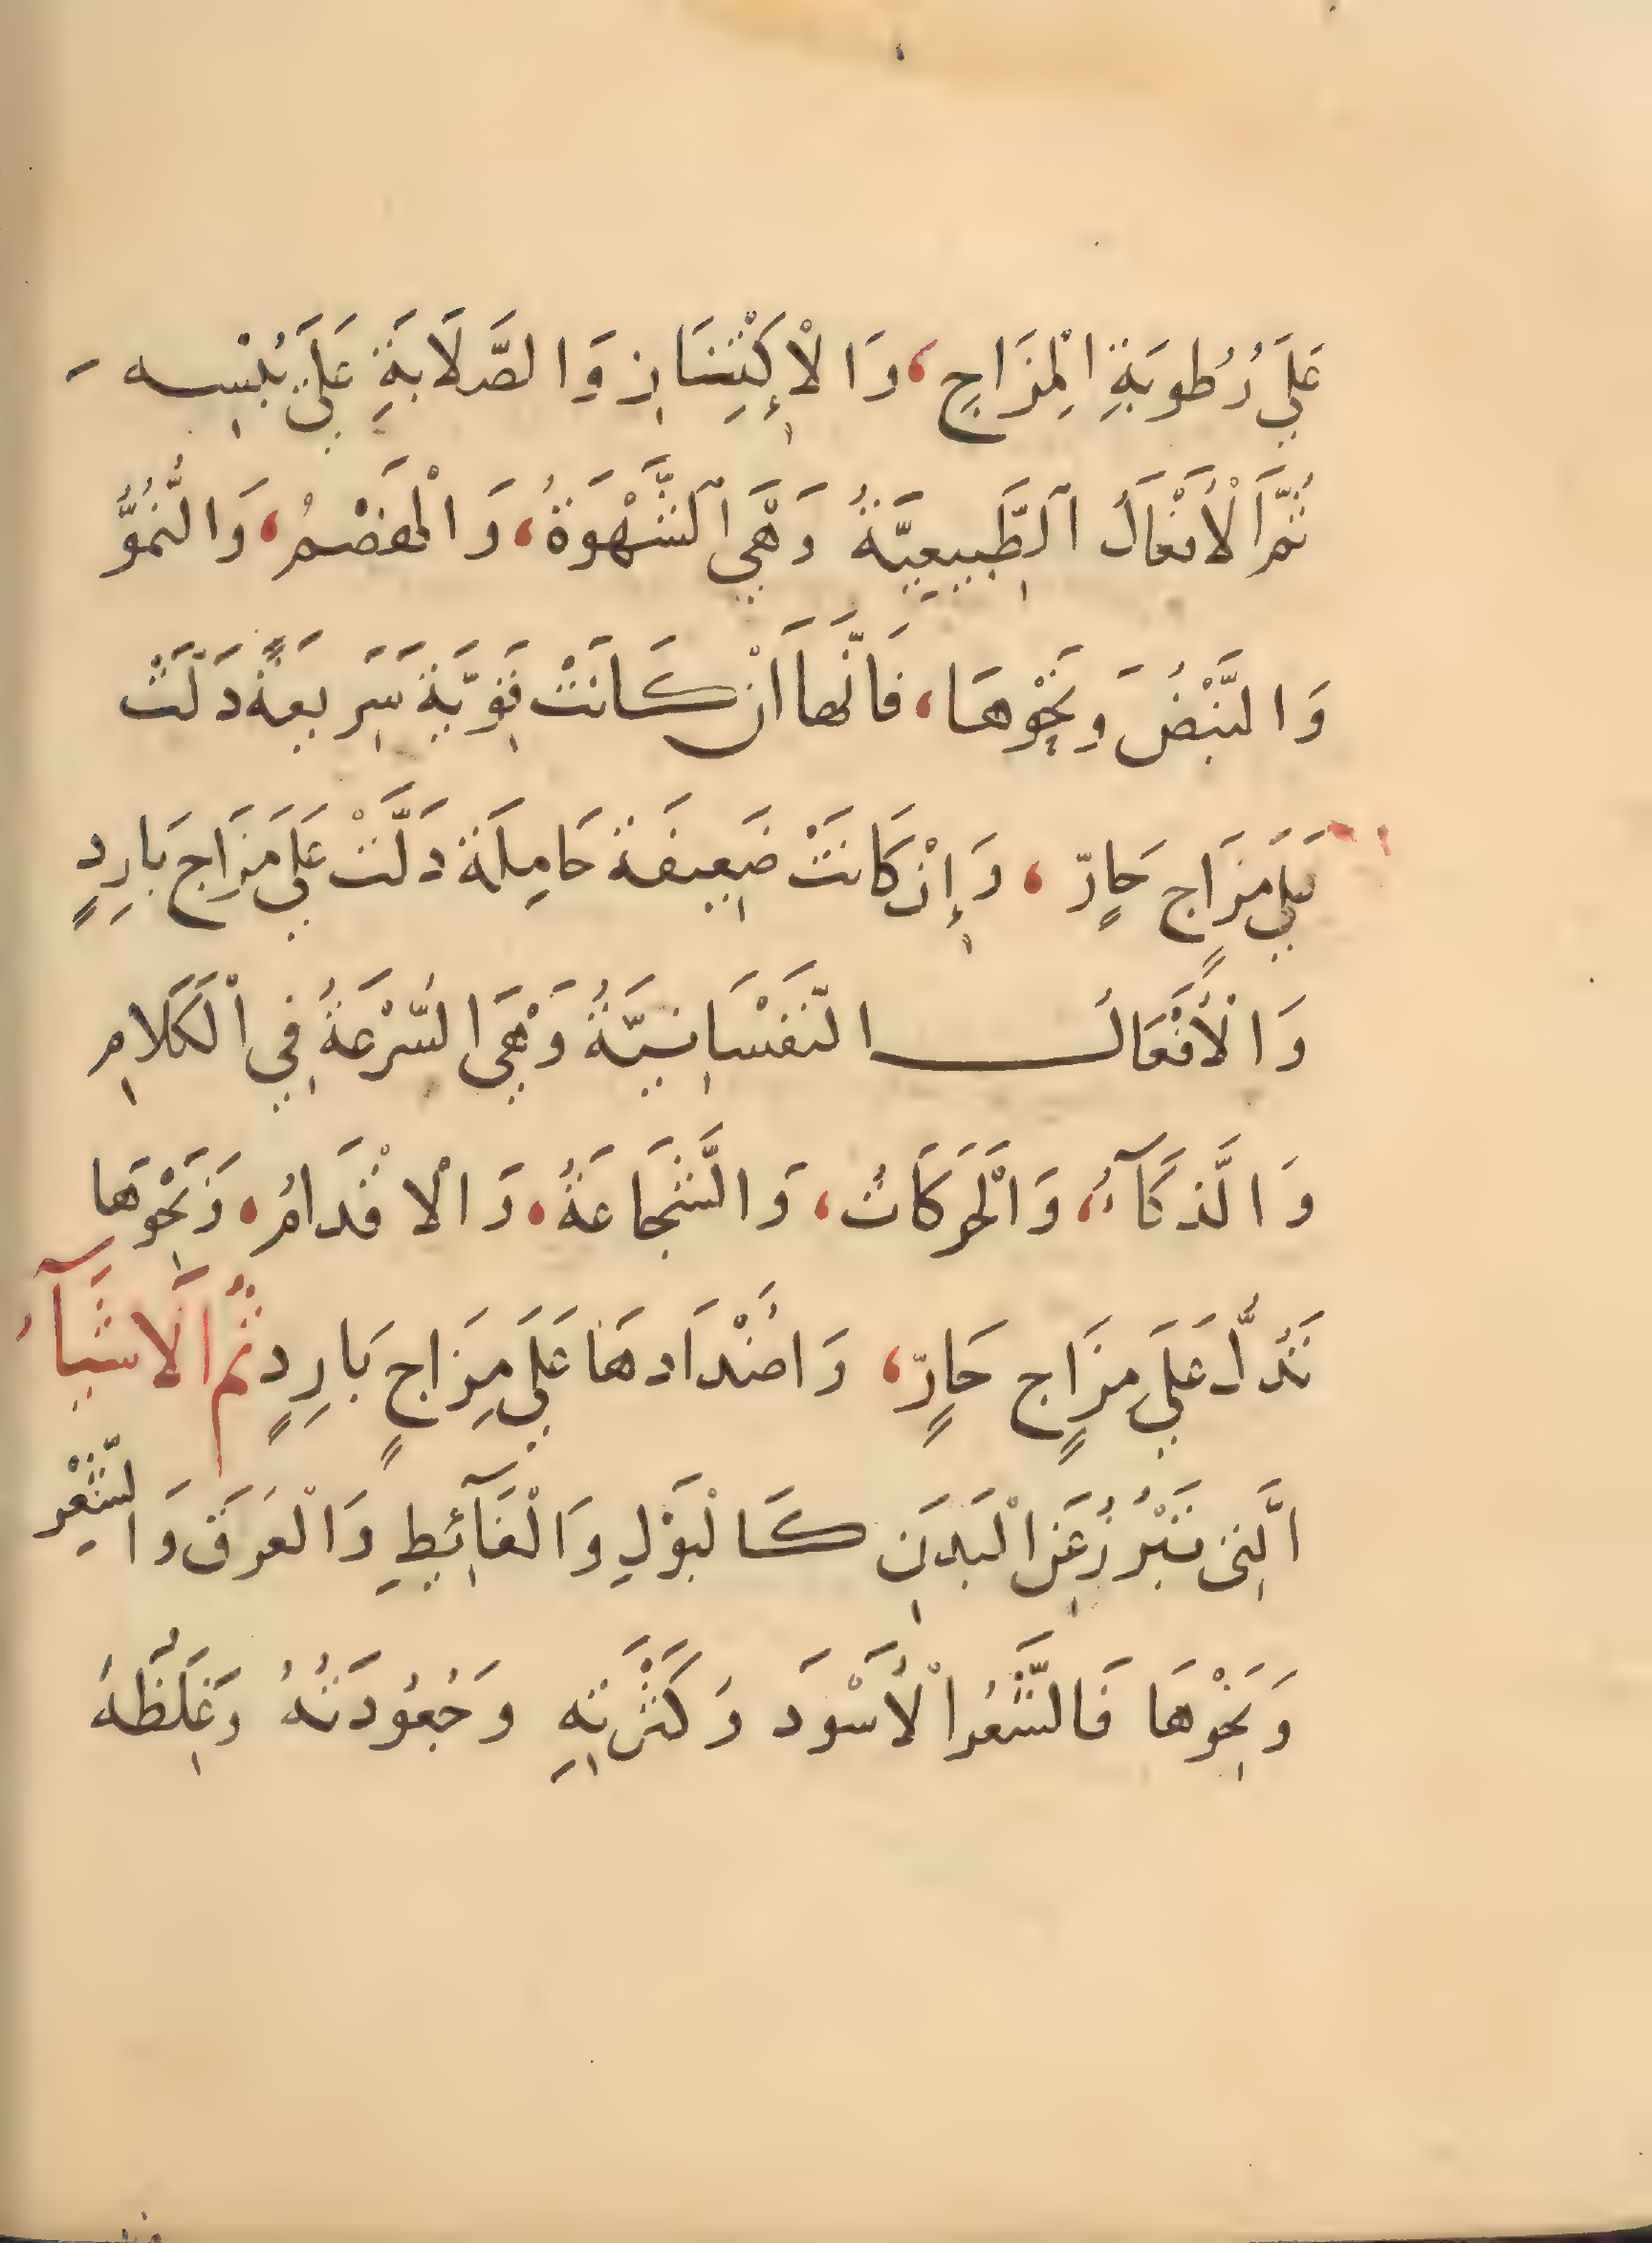 عَلَي رُطُوبَةِ الْمِزَاجِ، وَالْإِكْتِنَازِ وَالصَّلَابَةِ عَلَي يُبْسِه
ثُمَّ الْأَفْعَالُ الطَّبِيعِيَّةُ وَهْيَ الشَّهْوَةُ، وَالْهَضْمُ، وَالنُّمُوُّ
وَالنَّبْضُ وَنَحْوِهَا، فَانَّها اَنْ كَانَتْ قَوِيَّةً سَرِيعَةً دَلَّتْ
عَلَي مِزَاجٍ حَارٍّ، وَإِنْ كَانَتْ ضَعِيفَة خَامِلَة دَلَّتْ عَلَي مِزَاجٍ بَارِدٍ
وَالْأَفْعَالُ النَّفْسَانِيَّةُ وَهْيَ السُّرْعَةُ فِي الْكَلَامِ
وَالذَّكَآءُ، وَالْحَرَكَاتُ، وَالشَّجَاعَةُ، وَالْاقْدَامُ، وَنَحْوِهَا
تَدُلُّ عَلَي مِزَاجٍ حَارٍّ، وَاضْدَادهَا عَلَي مِزَاجٍ بَارِدٍ ثُمَّ الَاشيَآءُ
الَّتِي تَبْرُزُ عَنِ الْبَدَنِ كَالْبَوْلِ وَالْغَآئِطِ وَالْعَرَقِ وَالشَّعْرِ
وَنَحْوِهَا فَالشَّعْرُ الْأَسْوَد وَكَثْرَتِهِ وَجُعُودَتُهُ وَغِلَظُهُ